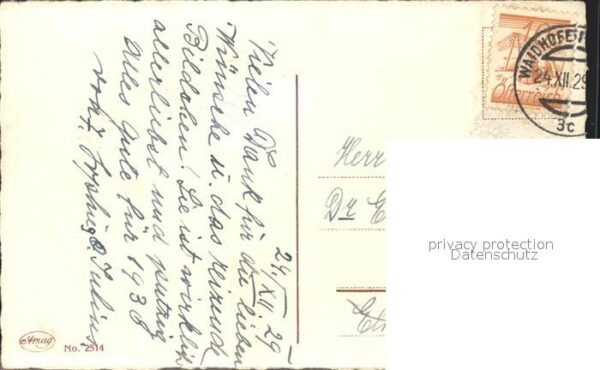 24./XII 29
Vielen Dank für die lieben
Wünsche u. das reizende
Bildchen! Sie ist wirklich
allerliebst und putzig
Alles Gute für 1930
Julius
Herr
Dr
WAIDHOFEN
24.XII.29
3c
Österreich
privacy protection
Datenschutz
Amag
No. 2514